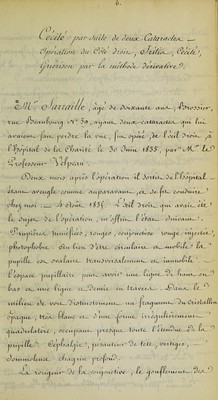 6.
Cécité par suite de deux Cataractes —
Opération du Côté droit, Iritis, Cécité,
Guérison par la méthode dérivative.
Mr Sarraille, âgé de soixante ans, Brossier,
rue Beaubourg No 50, ayant deux cataractes qui lui
avaient fait perdre la vue, fut opéré, de l'œil droit, à
l'hôpital de la Charité le 30 Juin 1835, par Mr le
Professeur Velpeau.
Deux mois après l'opération il sortit de l'hôpital
étant aveugle comme auparavant, et se fit conduire
chez moi le Août 1835. L'œil droit, qui avait été
le sujet de l'opération, m'offrit l'état suivant.
Paupières, tuméfiées, rouges, conjonctive rouge injectée,
photophobie au lieu d'être circulaire et mobile la
pupille est ovalaire transversalement et immobile —
l'espace pupillaire peut avoir une ligne de haut en
bas et une ligne et demie en travers. Dans le
milieu de voit distinctement un fragment du cristallin
opaque, très blanc et d'une forme irrégulièrement
quadrilatère, occupant presque toute l'étendue de la
pupille. Céphalgie, pesanteur de tête, vertiges,
somnolence chagrin profond.
La rougeur de la conjonctive, le gonflement des